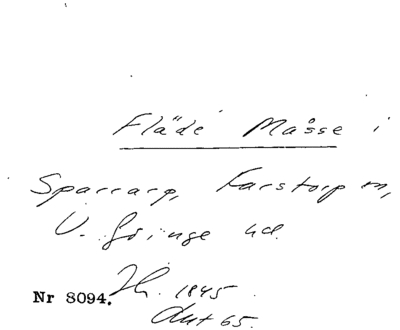 Fläde Måsse i
Sparrarp, Farstorp sn,
V. Göinge hd.
Nr 8094. 1845
Aut 65.